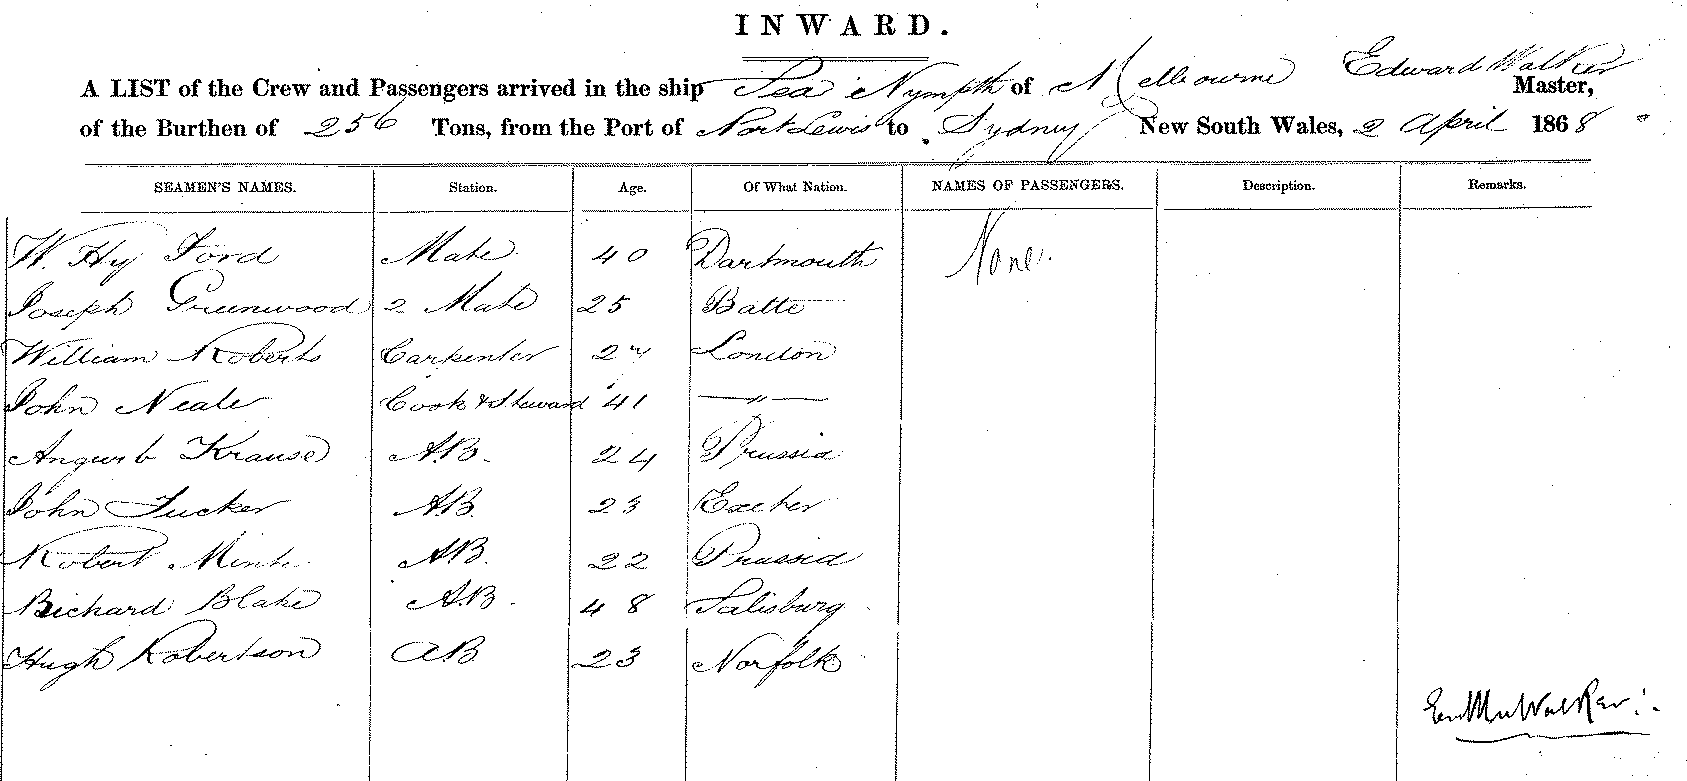 INWARD.
A LIST of the Crew and Passengers arrived in the ship Sea Nymph of Melbourne Edward Walker Master,
of the Burthen of 256 Tons, from the Port of Port Lewis to Sydney New South Wales, 2 April 1868
SEAMEN'S NAMES. Station. Age. Of What Nation. NAMES OF PASSENGERS. Description. Remarks.
W. Hy Ford Mate 40 Dartmouth None.
Joseph Greenwood 2 Mate 25 Batte
William Roberts Carpenter 27 London
John Neale Cook & Steward 41 —〃—
Krause A.B. 24 Prussia
John Tucker A.B. 23 Exeter
Robert A.B. 22 Prussia
Richard Blake A.B. 48 Salisburg
Hugh Robertson AB 23 Norfolk
Walker